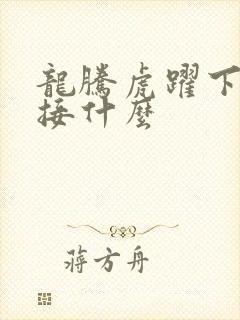 龍騰虎躍下
接什麼
蔣方舟